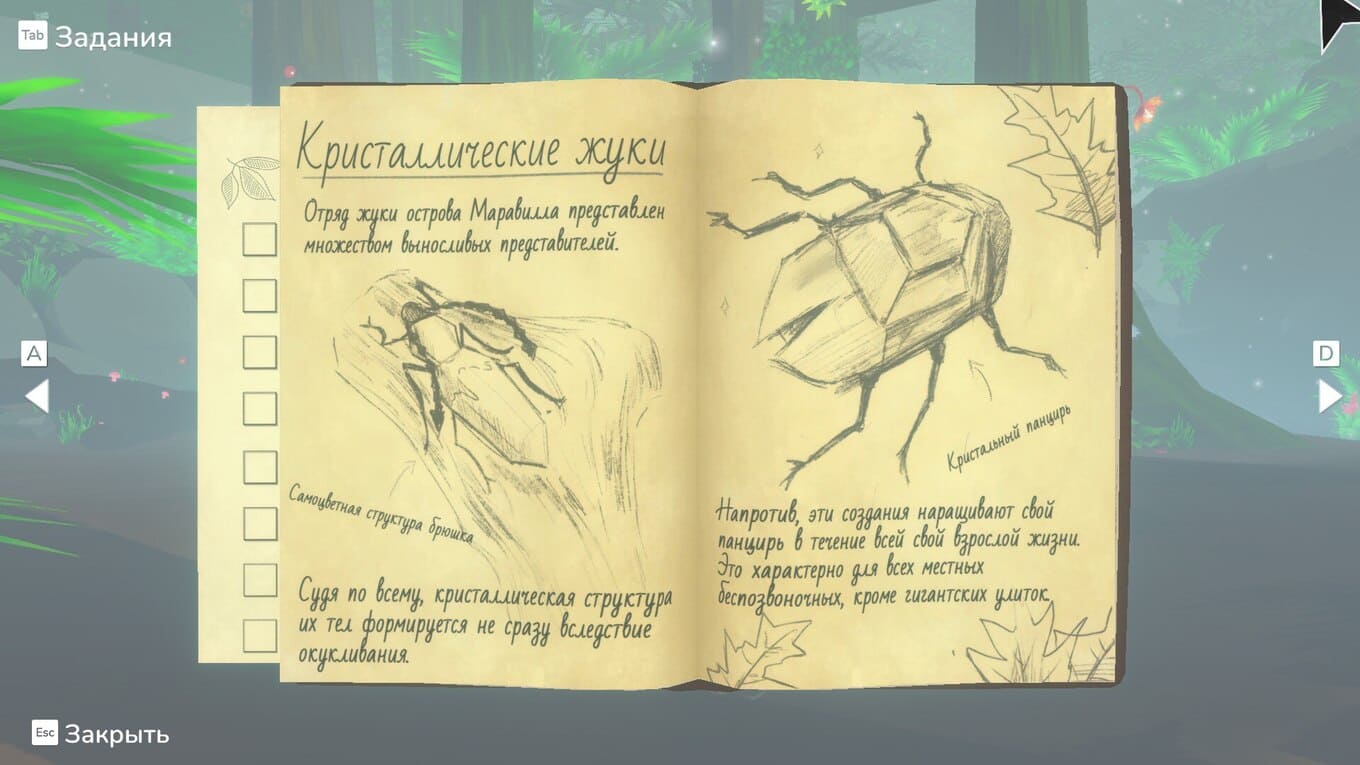 Tab Задания
Кристаллические жуки
Отряд жуки острова Маравилла представлен
множеством выносливых представителей.
Самоцветная структура брюшка
Судя по всему, кристаллическая структура
их тел формируется не сразу вследствие
окукливания.
Кристальный панцирь
Напротив, эти создания наращивают свой
панцирь в течение всей свой взрослой жизни.
Это характерно для всех местных
беспозвоночных, кроме гигантских улиток.
A
D
Esc Закрыть